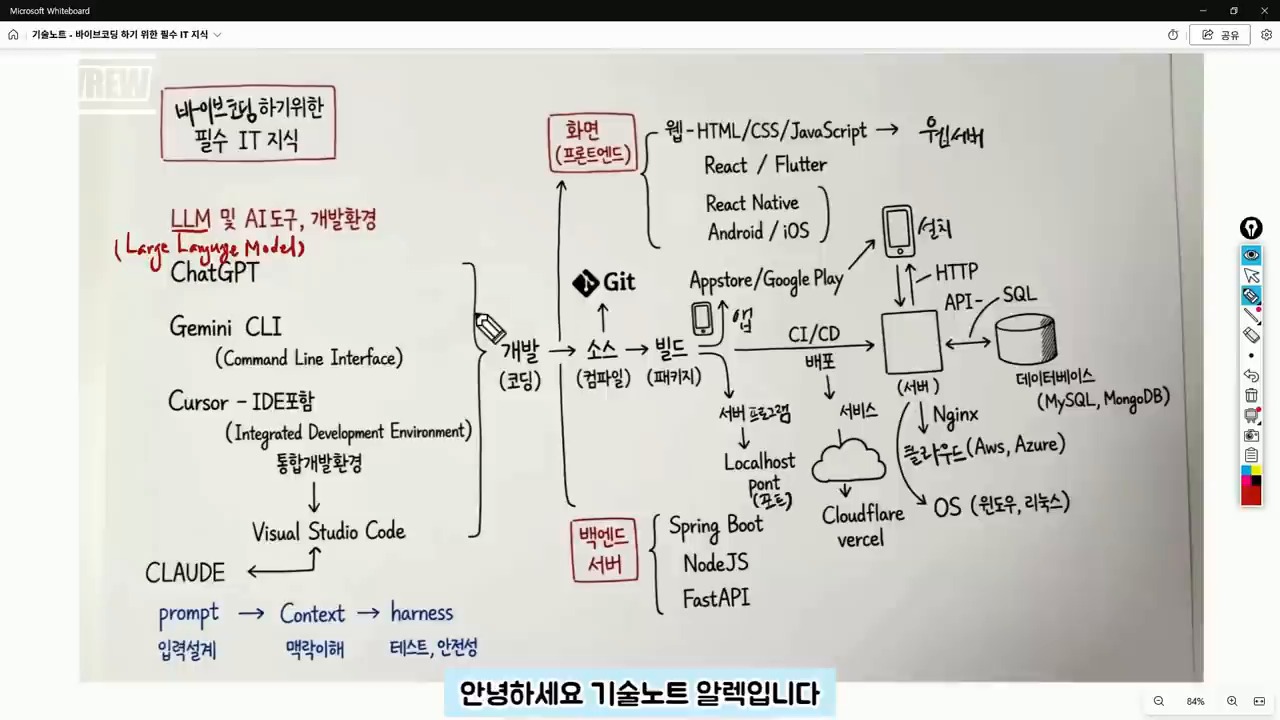 Microsoft Whiteboard
기술노트 - 바이브코딩 하기 위한 필수 IT 지식
공유
VREW
바이브코딩 하기위한
필수 IT 지식
LLM 및 AI도구, 개발환경
(Large Languge Model)
ChatGPT
Gemini CLI
(Command Line Interface)
Cursor - IDE포함
(Integrated Development Environment)
통합개발환경
Visual Studio Code
CLAUDE
prompt → Context → harness
입력설계 맥락이해 테스트, 안전성
개발 → 소스 → 빌드
(코딩) (컴파일) (패키지)
Git
화면
(프론트엔드)
웹 - HTML/CSS/JavaScript → 웹서버
React / Flutter
React Native
Android / iOS
Appstore/Google Play
앱
설치
HTTP
API - SQL
CI/CD
배포
(서버)
데이터베이스
(MySQL, MongoDB)
서버 프로그램
Localhost
pont
(포트)
서비스
Cloudflare
vercel
Nginx
클라우드 (Aws, Azure)
OS (윈도우, 리눅스)
백엔드
서버
Spring Boot
NodeJS
FastAPI
안녕하세요 기술노트 알렉입니다
84%